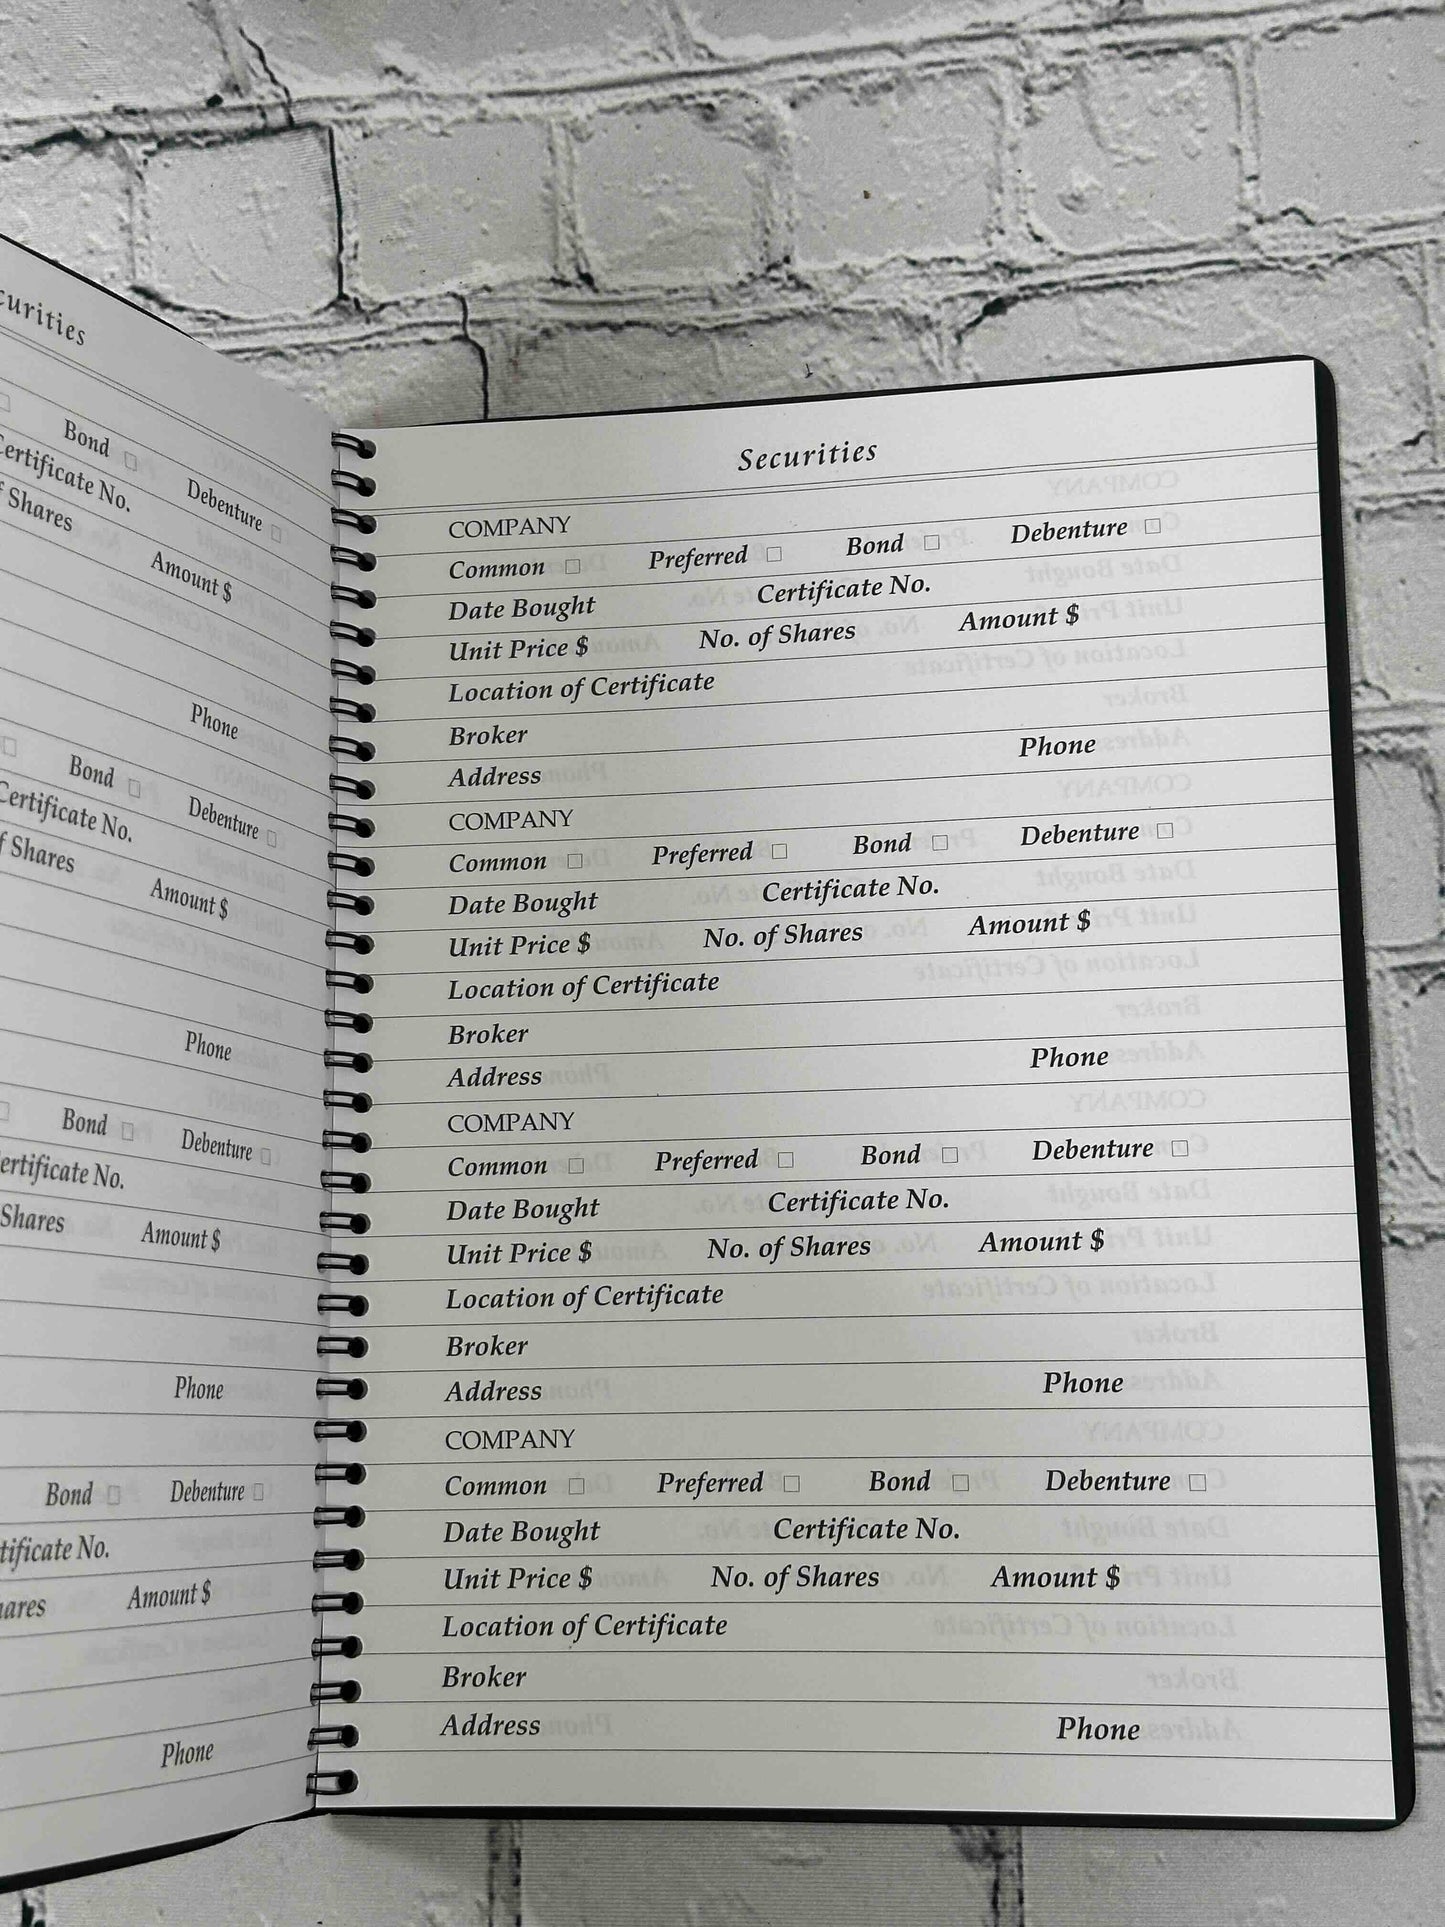 curities
Bond Debenture
Certificate No.
f Shares Amount $
Phone
Bond Debenture
Certificate No.
f Shares Amount $
Phone
Bond Debenture
ertificate No.
Shares Amount $
Phone
Bond Debenture
tificate No.
ares Amount $
Phone
Securities
COMPANY
Common □ Preferred □ Bond □ Debenture □
Date Bought Certificate No.
Unit Price $ No. of Shares Amount $
Location of Certificate
Broker
Address Phone
COMPANY
Common □ Preferred □ Bond □ Debenture □
Date Bought Certificate No.
Unit Price $ No. of Shares Amount $
Location of Certificate
Broker
Address Phone
COMPANY
Common □ Preferred □ Bond □ Debenture □
Date Bought Certificate No.
Unit Price $ No. of Shares Amount $
Location of Certificate
Broker
Address Phone
COMPANY
Common □ Preferred □ Bond □ Debenture □
Date Bought Certificate No.
Unit Price $ No. of Shares Amount $
Location of Certificate
Broker
Address Phone